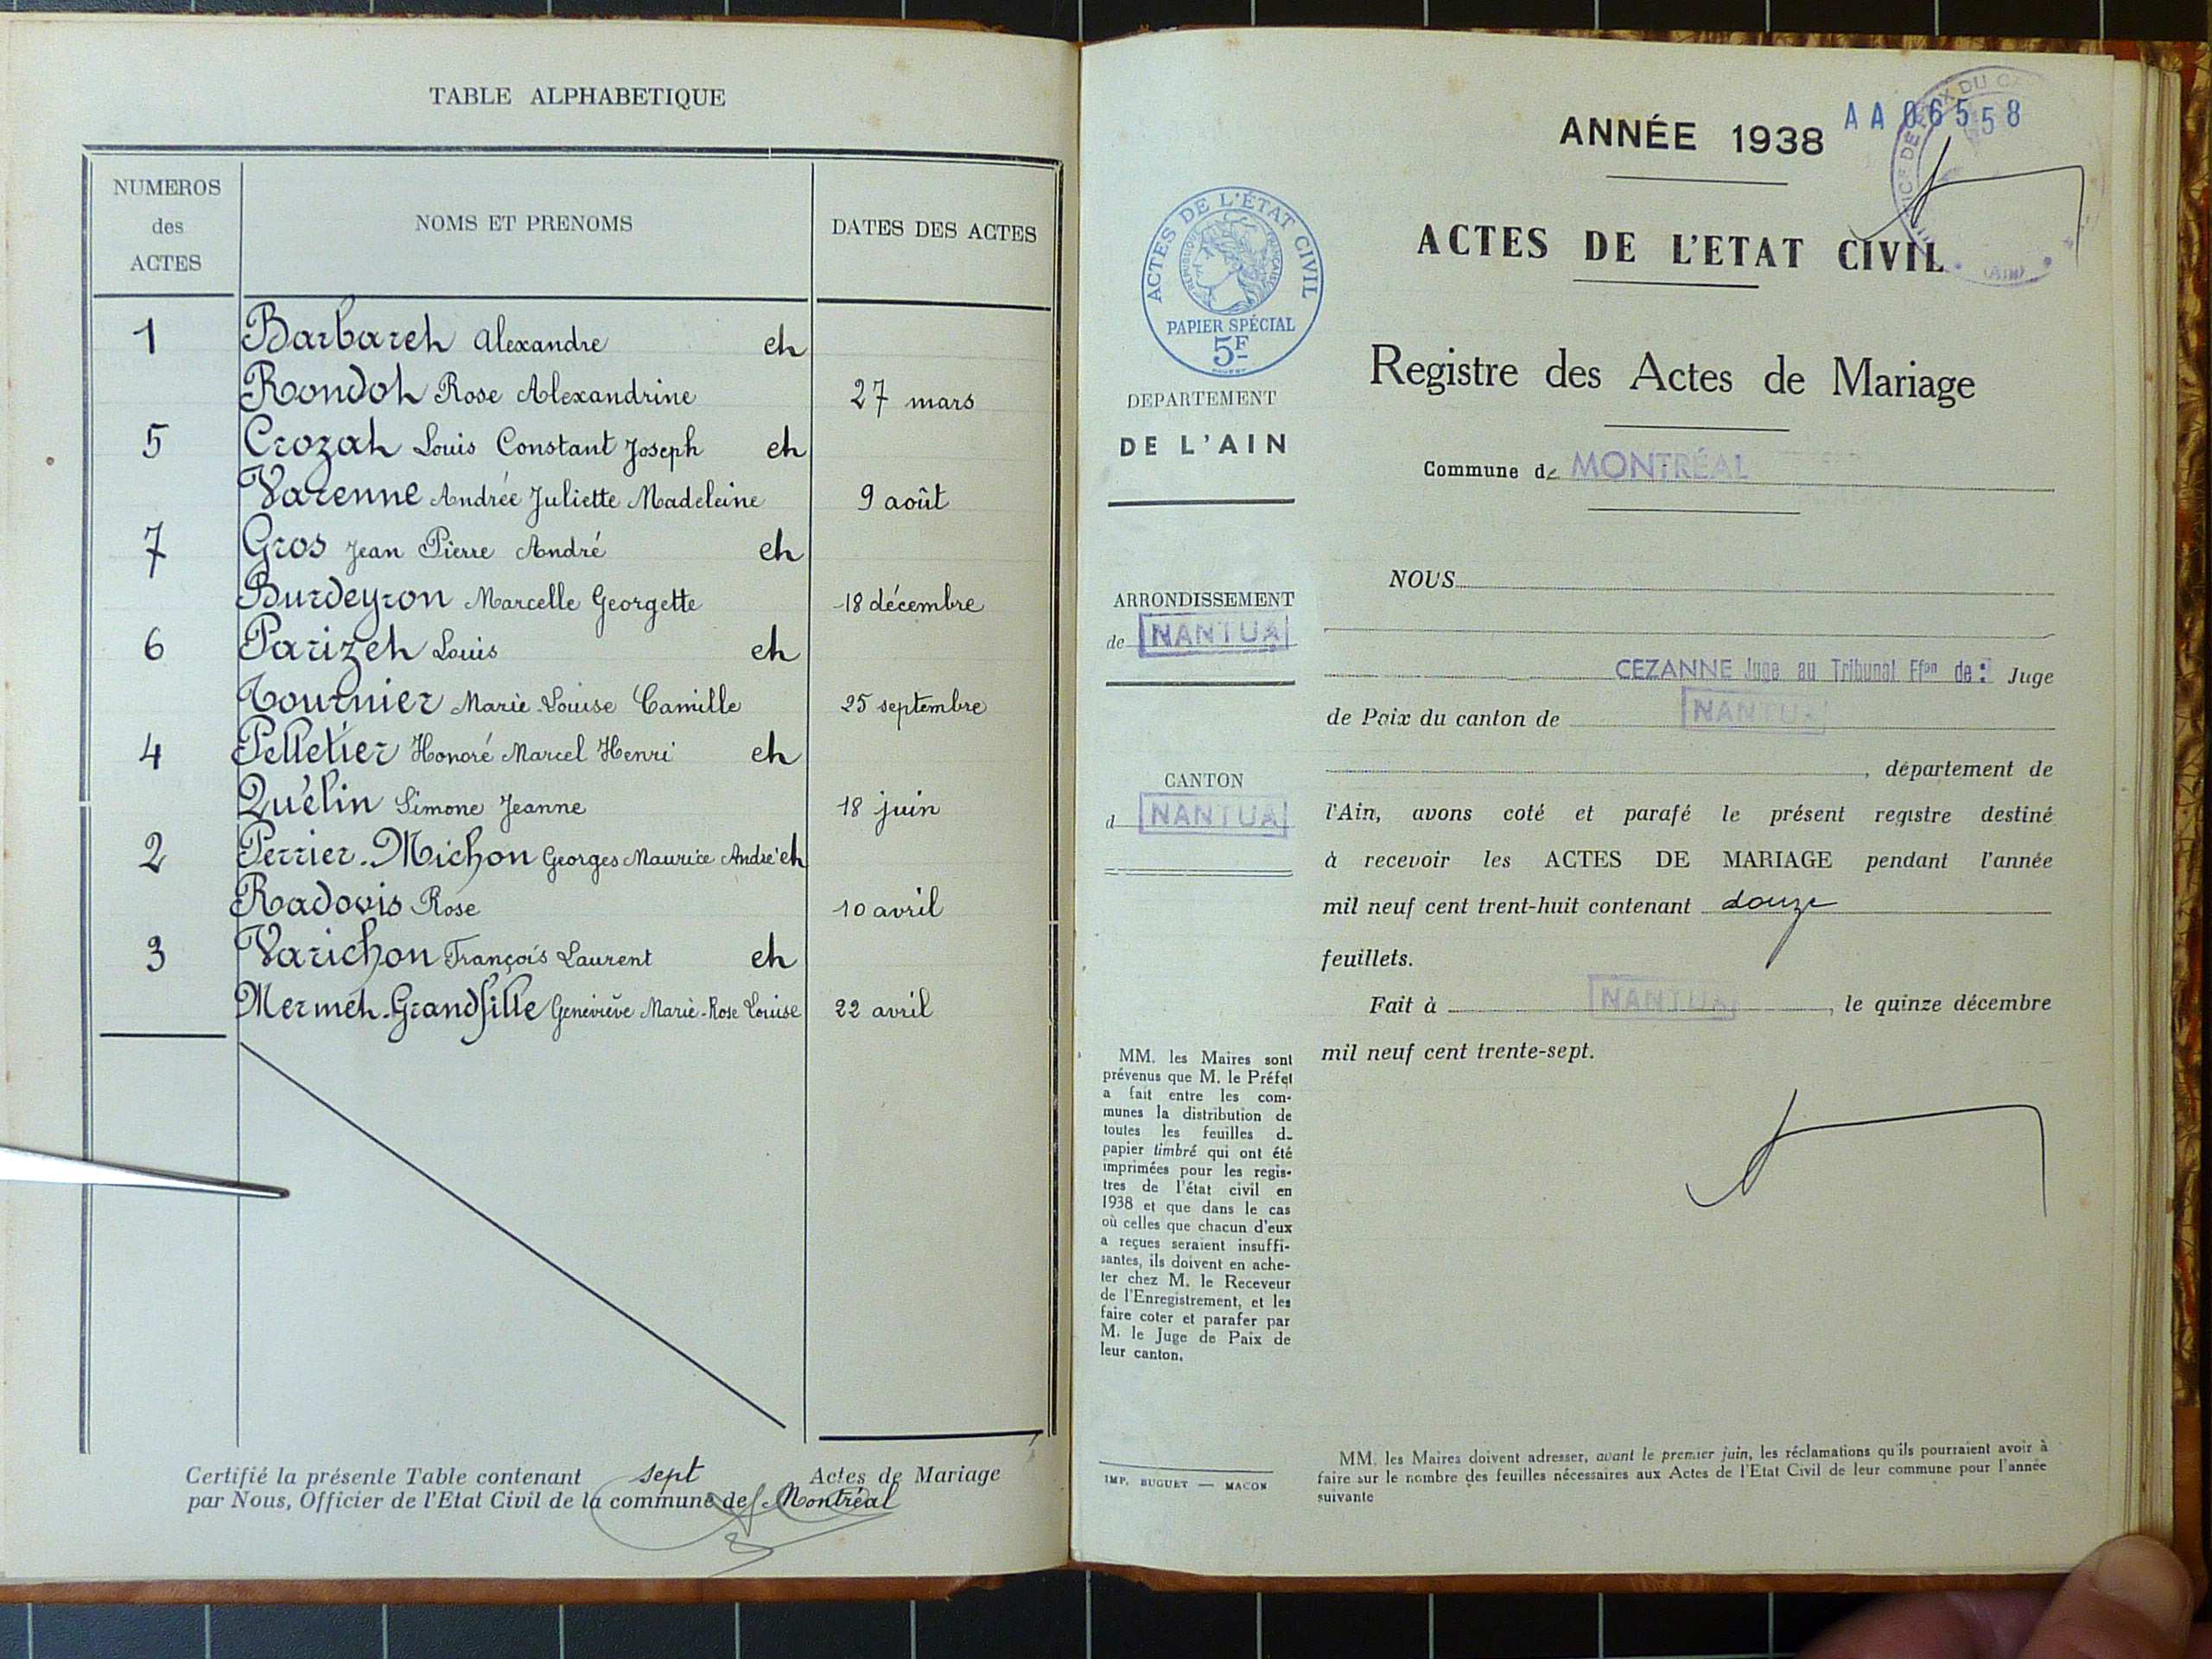 TABLE ALPHABETIQUE
NUMEROS
des
ACTES
NOMS ET PRENOMS
DATES DES ACTES
1 Barbaret Alexandre et
Rondot Rose Alexandrine 27 mars
5 Crozat Louis Constant Joseph et
Varenne Andrée Juliette Madeleine 9 août
7 Gros Jean Pierre André et
Burdeyron Marcelle Georgette 18 décembre
6 Parizet Louis et
Tournier Marie-Louise Camille 25 septembre
4 Pelletier Honoré Marcel Henri et
Quélin Simone Jeanne 18 juin
2 Perrier-Michon Georges Maurice André et
Radovis Rose 10 avril
3 Varichon François Laurent et
Mermet-Grandfille Geneviève Marie-Rose Louise 22 avril
Certifié la présente Table contenant sept Actes de Mariage
par Nous, Officier de l'Etat Civil de la commune de Montréal
ANNÉE 1938
AA 06558
ACTES DE L'ETAT CIVIL
Registre des Actes de Mariage
Commune de MONTRÉAL
ACTES DE L'ÉTAT CIVIL
RÉPUBLIQUE FRANÇAISE
PAPIER SPÉCIAL
5F
DEPARTEMENT
DE L'AIN
ARRONDISSEMENT
de NANTUA
CANTON
d NANTUA
MM. les Maires sont
prévenus que M. le Préfet
a fait entre les com-
munes la distribution de
toutes les feuilles de
papier timbré qui ont été
imprimées pour les regis-
tres de l'état civil en
1938 et que dans le cas
où celles que chacun d'eux
a reçues seraient insuffi-
santes, ils doivent en ache-
ter chez M. le Receveur
de l'Enregistrement, et les
faire coter et parafer par
M. le Juge de Paix de
leur canton.
IMP. BUGUET — MACON
NOUS
CEZANNE Juge au Tribunal Ffon de : Juge
de Paix du canton de NANTUA
, département de
l'Ain, avons coté et parafé le présent registre destiné
à recevoir les ACTES DE MARIAGE pendant l'année
mil neuf cent trent-huit contenant douze
feuillets.
Fait à NANTUA, le quinze décembre
mil neuf cent trente-sept.
MM. les Maires doivent adresser, avant le premier juin, les réclamations qu'ils pourraient avoir à
faire sur le nombre des feuilles nécessaires aux Actes de l'Etat Civil de leur commune pour l'année
suivante